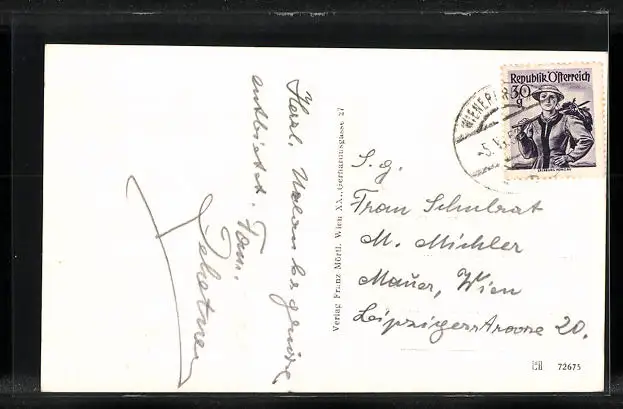 Herzl. Urlaubsgrüsse
entbietet.
Fam.
Zehetner
Verlag Franz Mörtl, Wien XX., Gerhardusgasse 27
Republik Österreich
30 g
WIENER
-5.V
S. g.
Frau Schulrat
M. Michler
Mauer, Wien
Leipzigerstrasse 20.
72675